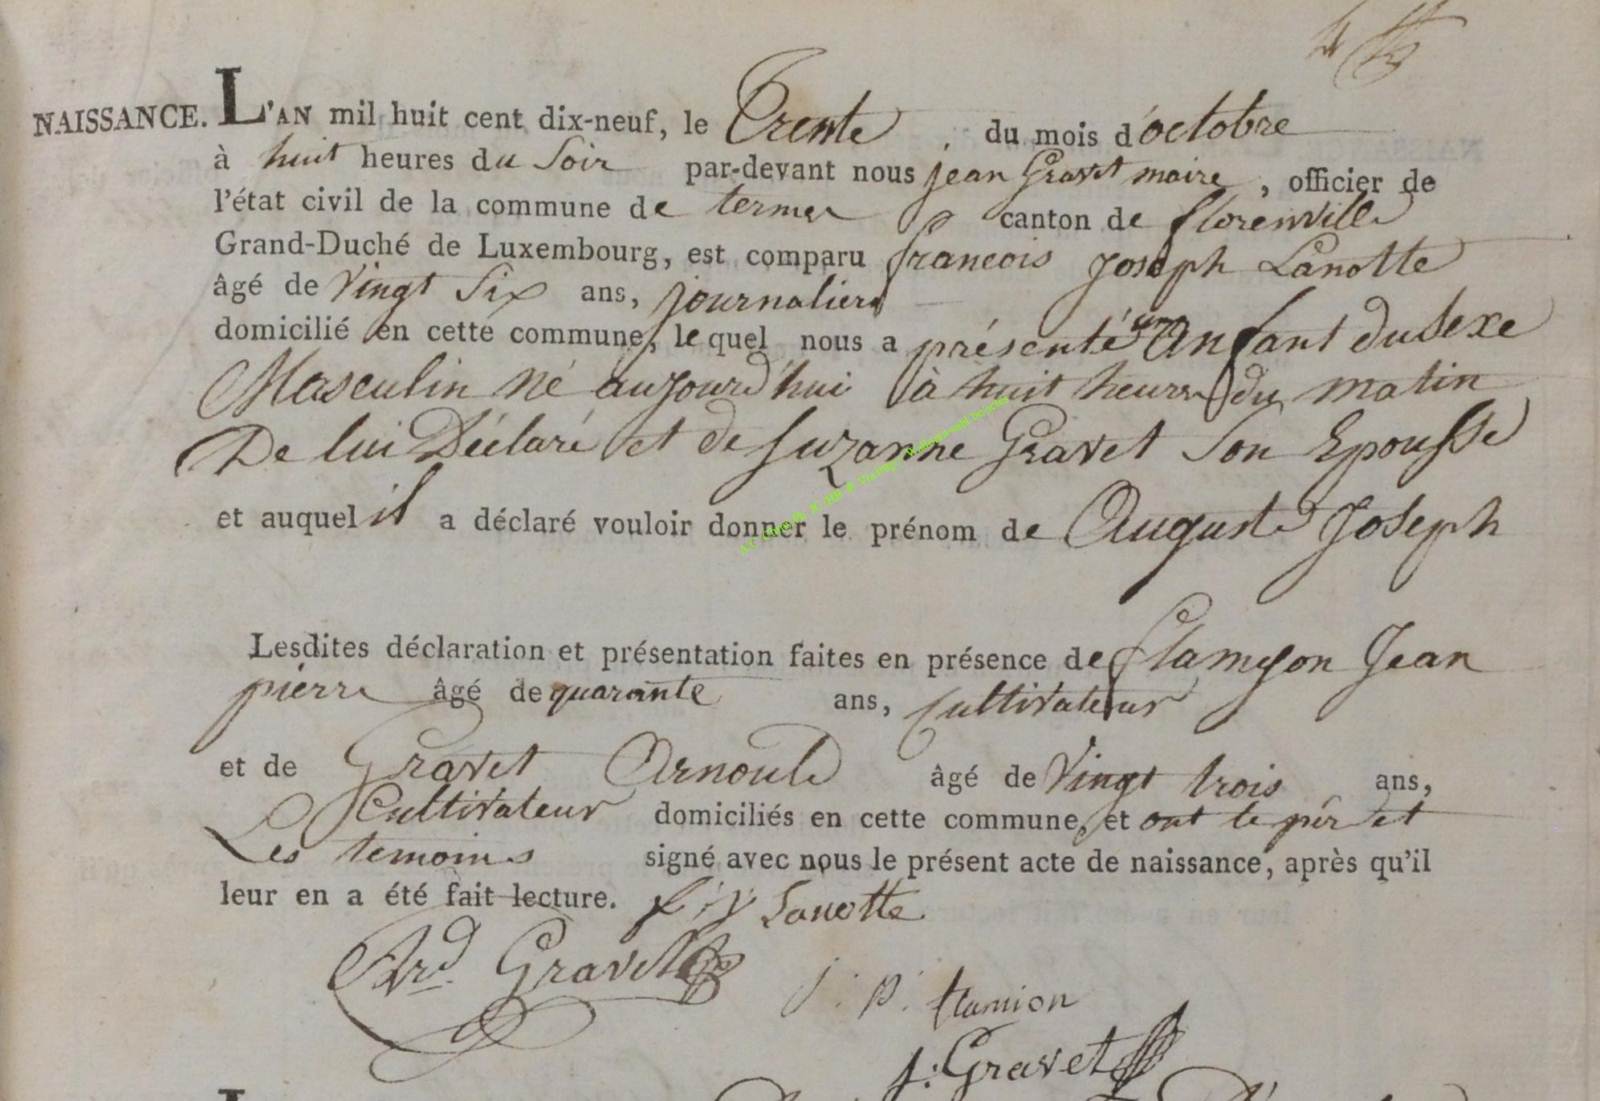 NAISSANCE. L'AN mil huit cent dix-neuf, le Trente du mois d'octobre
à huit heures du Soir par-devant nous jean Gravet maire, officier de
l'état civil de la commune de termes canton de florenville
Grand-Duché de Luxembourg, est comparu francois Joseph Lanotte
âgé de Vingt Six ans, journalier
domicilié en cette commune, lequel nous a présenté un Anfant du Sexe
Masculin né aujourd'hui à huit heures du matin
De lui Déclaré et de Suzanne Gravet Son Epousse
et auquel il a déclaré vouloir donner le prénom de Auguste Joseph
Lesdites déclaration et présentation faites en présence de Jean
pierre âgé de quarante ans, Cultivateur
et de Gravet Arnould âgé de Vingt trois ans,
Cultivateur domiciliés en cette commune, et ont le pèr et
Les temoins signé avec nous le présent acte de naissance, après qu'il
leur en a été fait lecture. f: j Lanotte
Ard. Gravet
j: p: flamion
j: Gravet